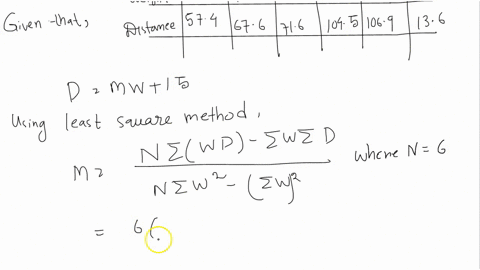 Given that,
Distance 57.4 67.6 71.6 104.5 106.9 13.6
D = MW+15
Using least square method,
M = NΣ(WD) - ΣWΣD / NΣW² - (ΣW)² where N = 6
= 6(